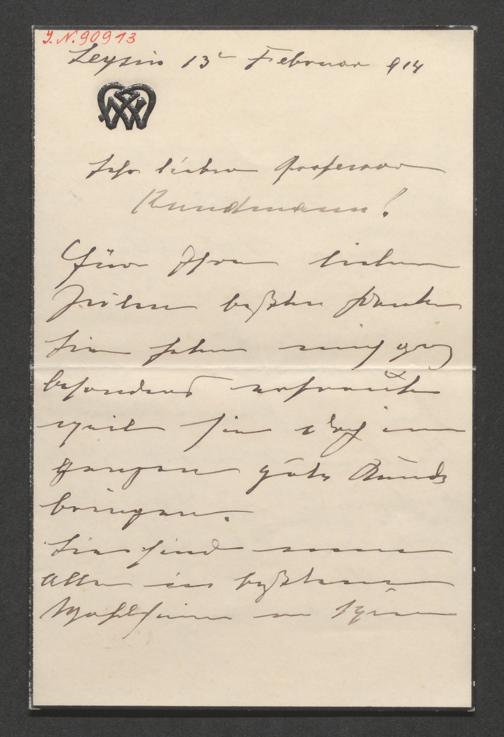 J.N. 90913
Leysin 13r Februar 914
Sehr lieber Professor
Kundmann!
Für Ihre lieben
Zeilen besten Dank
Sie haben mich ganz
besonders erfreut
weil sie doch im
ganzen gute Kunde
bringen.
Sie sind
Alle im besten
Wohlsein in